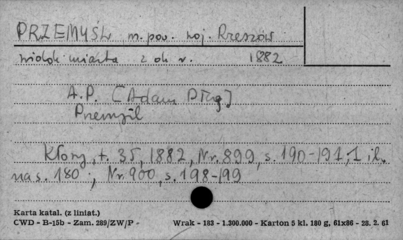 PRZEMYŚL m. pow. woj. Rzeszów
widok miasta z ok r. 1882
A.P. [Adam
Przemyśl
Kłosy, t. 35, 1882, Nr. 899, s. 190-191, 1 il.
na s. 180; Nr. 900, s. 198-199
Karta katal. (z liniat.)
CWD - B-15b - Zam. 289/ZW/P - Wrak - 183 - 1.300.000 - Karton 5 kl. 180 g, 61x86 - 28. 2. 61